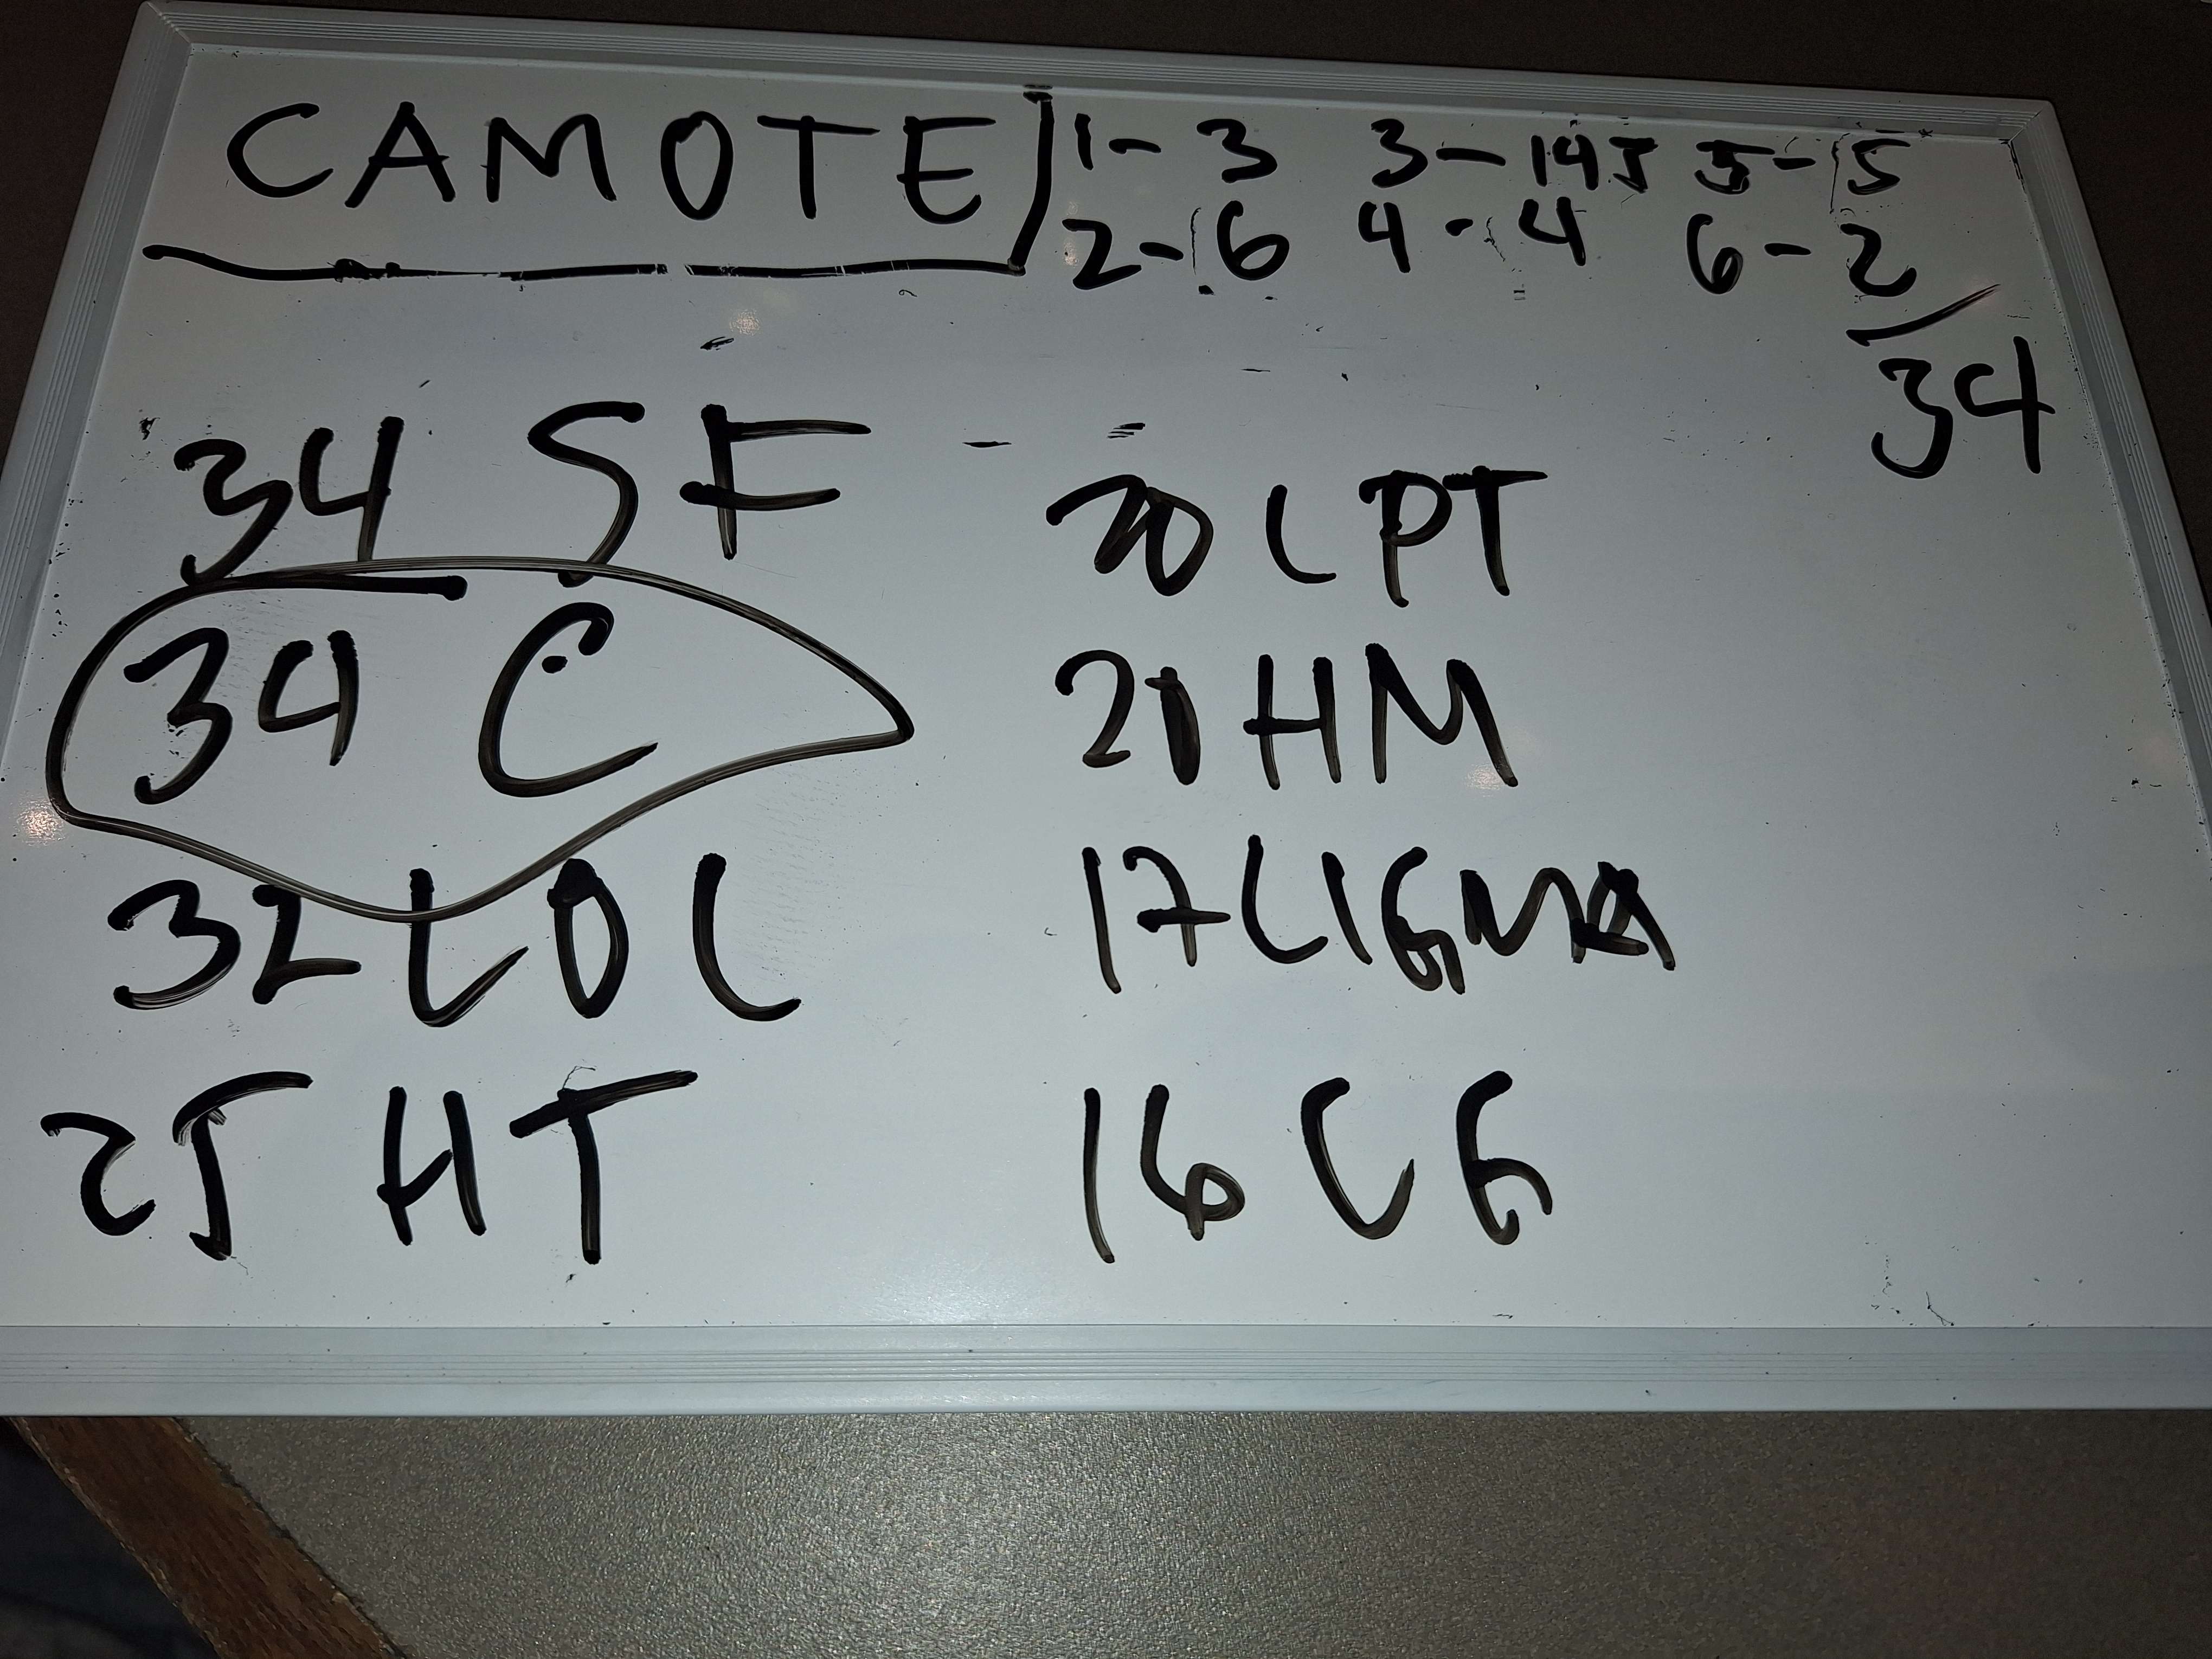 CAMOTE
1-3 3-14.5 5-5
2-6 4-4 6-2
34
34 SF
34 C
32 LOL
25 HT
20 LPT
20 HM
17 LIGMA
16 CG